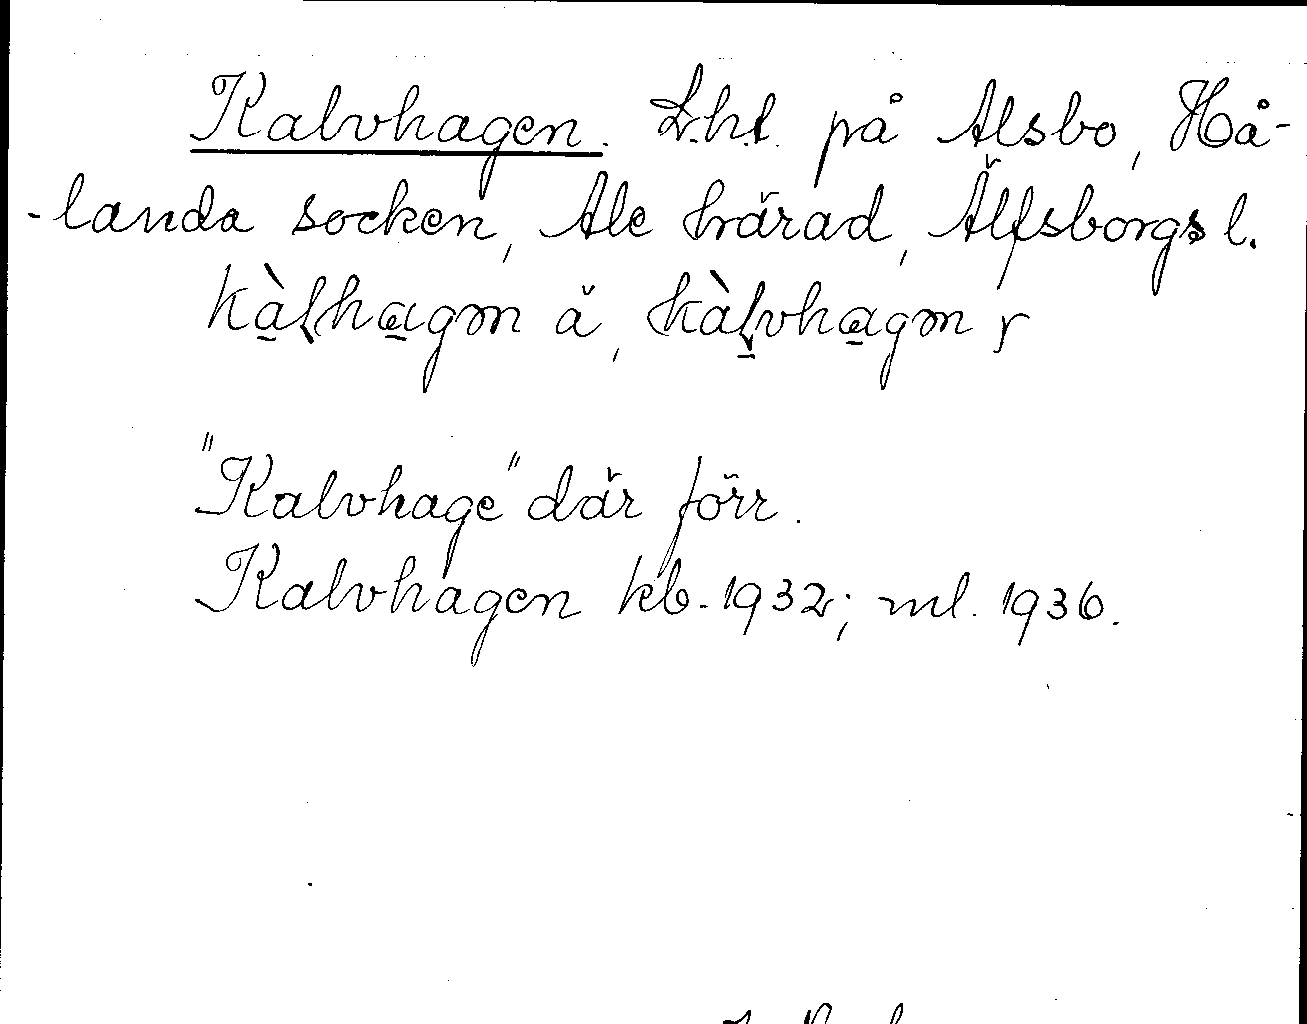 Kalvhagen. L.h.t. på Alsbo, Hå-
-landa socken, Ale härad, Älfsborgs l.
kàlhagm ä, kàlvhagm y
"Kalvhage" där förr.
Kalvhagen kb. 1932; ml. 1936.